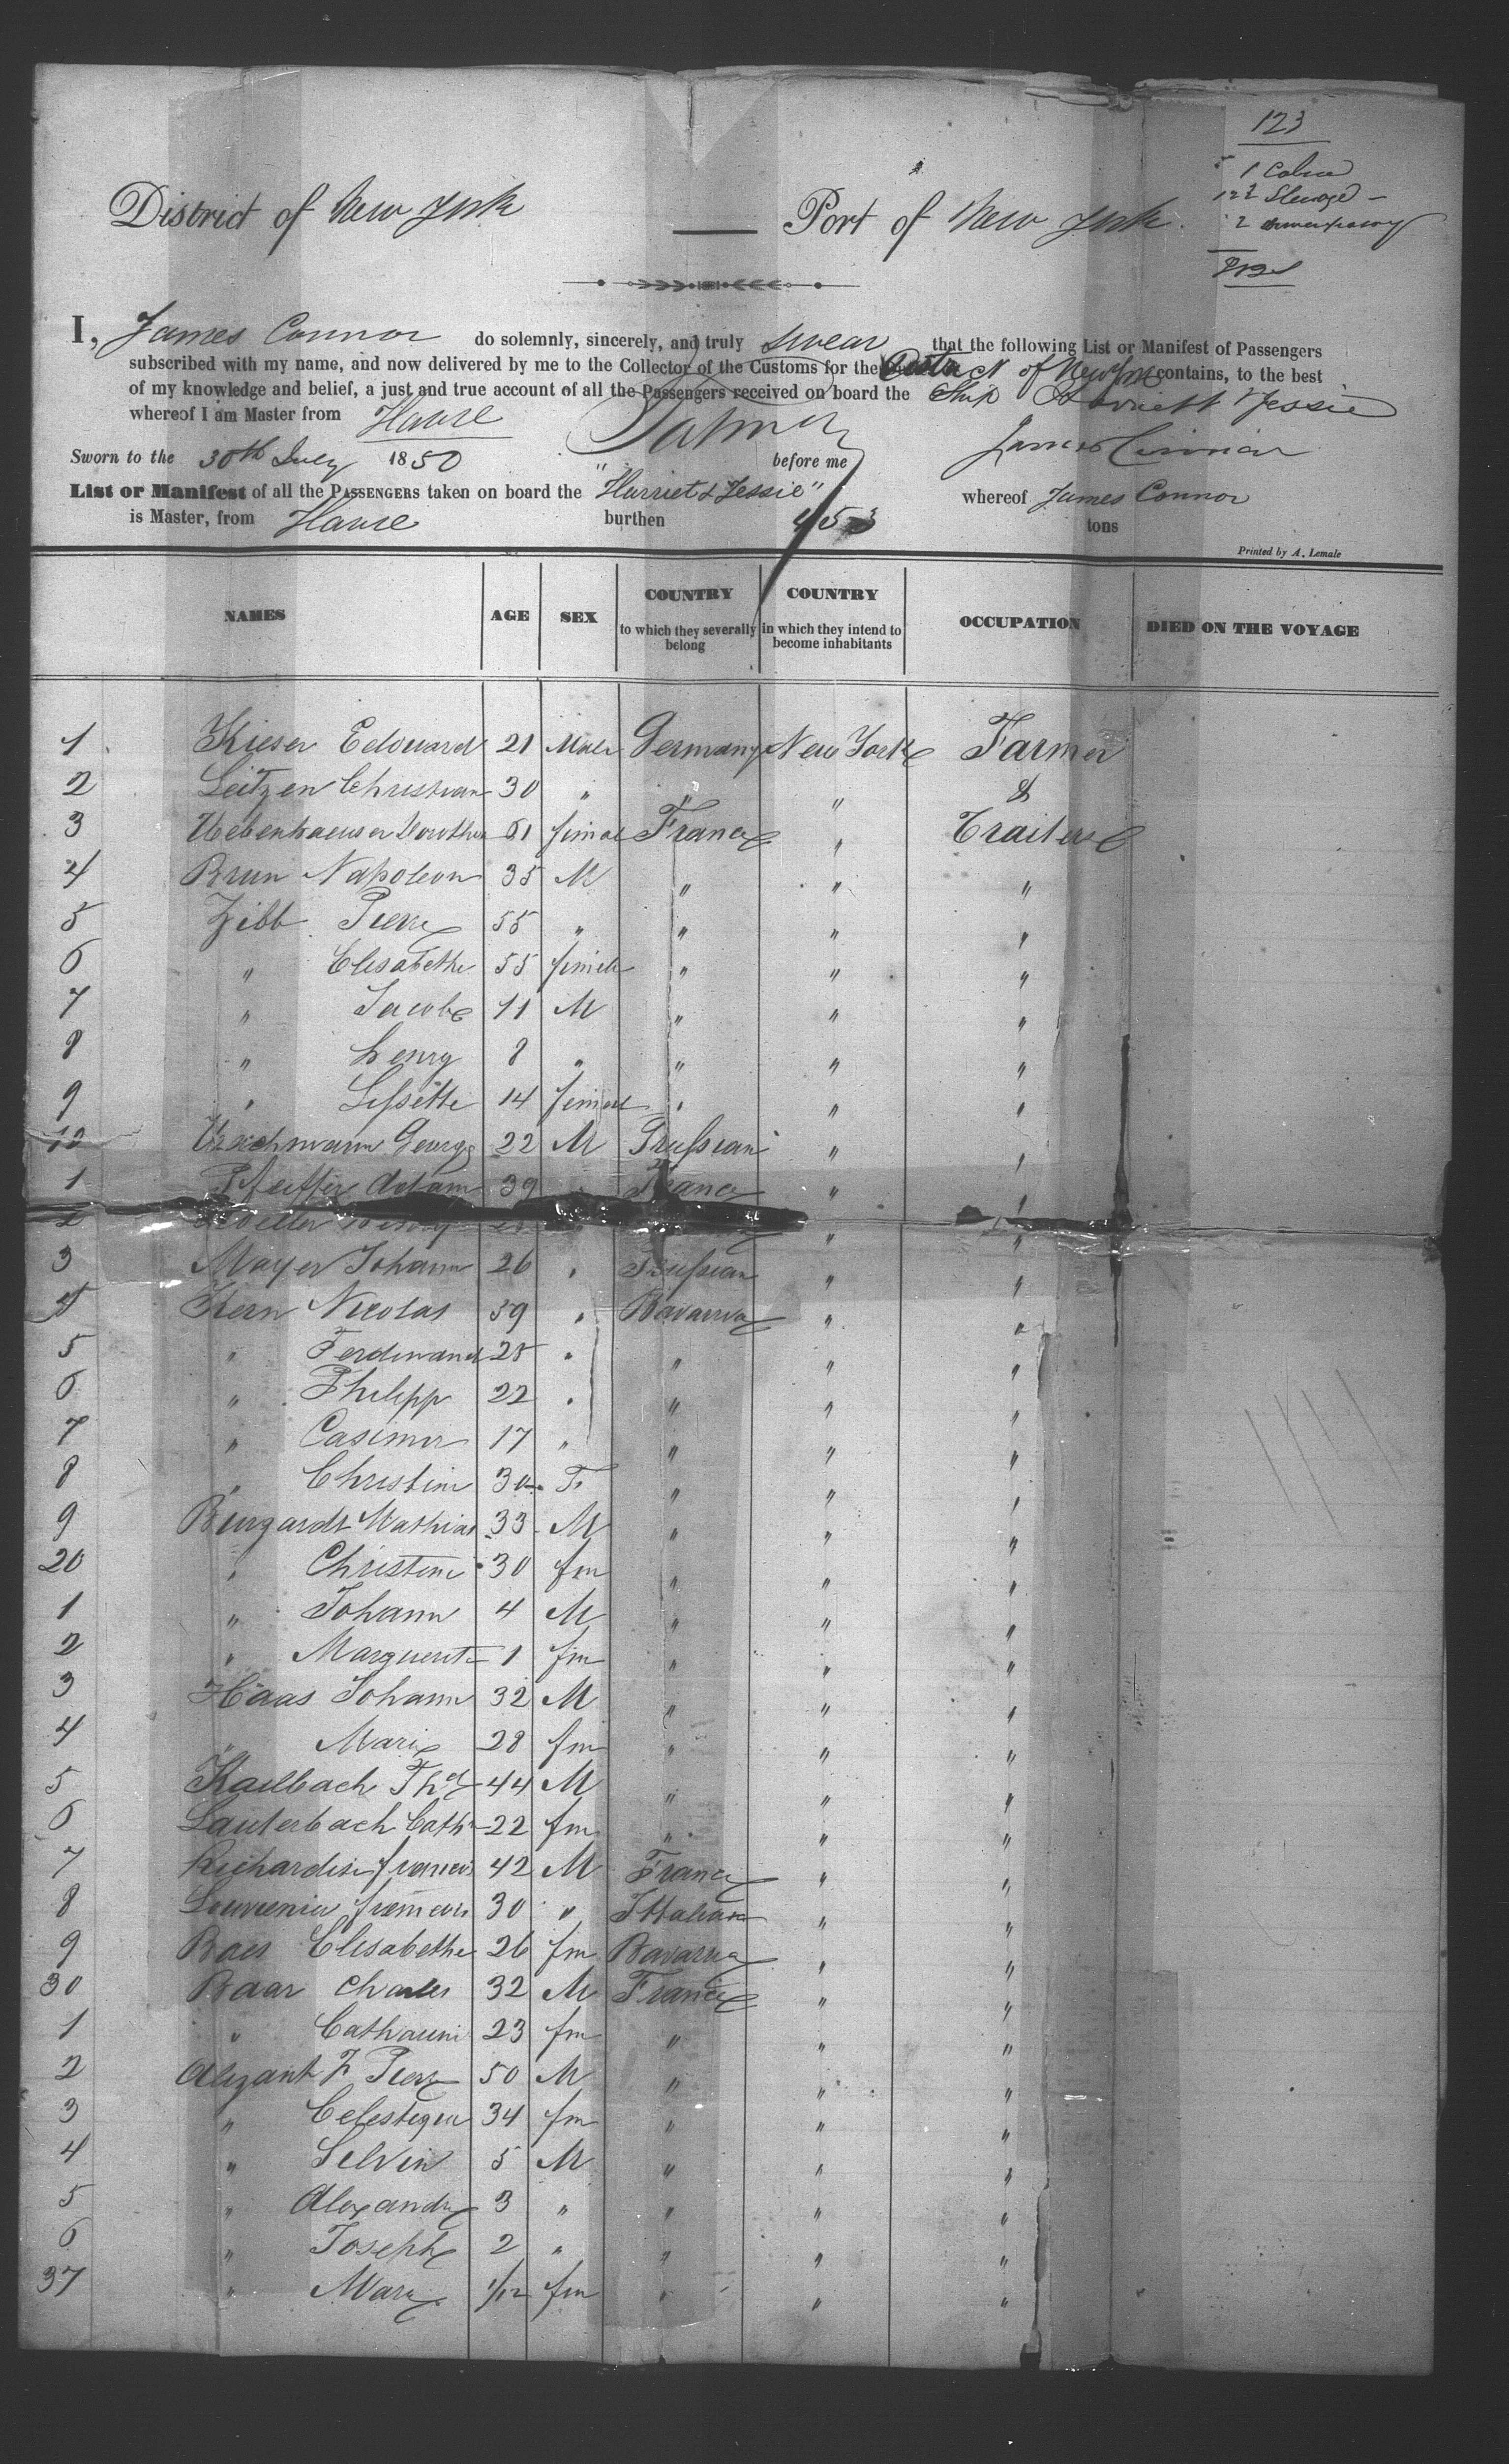 123
1 Cabin
122 Steerage -
2
District of New York Port of New York.
I, James Connor do solemnly, sincerely, and truly swear that the following List or Manifest of Passengers
subscribed with my name, and now delivered by me to the Collector of the Customs for the District of New York contains, to the best
of my knowledge and belief, a just and true account of all the Passengers received on board the Ship Harriett & Jessie
whereof I am Master from Havre
James Connor
Sworn to the 30th July 1850 before me
List or Manifest of all the PASSENGERS taken on board the "Harriet & Jessie" whereof James Connor
is Master, from Havre burthen 453 tons
Printed by A. Lemale
NAMES AGE SEX COUNTRY to which they severally belong COUNTRY in which they intend to become inhabitants OCCUPATION DIED ON THE VOYAGE
1 Kieser Edouard 21 Male Germany New York Farmer
2 Leitzen Christian 30 " " " &
3 Dorothea 61 femal France "
4 Brun Napoleon 35 M " " "
5 Zibb Pierre 55 " " " "
6 " Elisabethe 55 femele " " "
7 " Jacobe 11 M " " "
8 " henry 8 " " " "
9 " Lissette 14 femal " " "
10 George 22 M Prussian " "
1 Pfeiffer Adam 39 " France " "
2 " "
3 Mayer Johann 26 " Prussian " "
4 Kern Nicolas 59 " Bavaria " "
5 " Ferdinand 25 " " " "
6 " Philipp 22 " " " "
7 " Casimir 17 " " " "
8 " Christine 30 F " " "
9 Burgardt Mathias 33 M " " "
20 " Christine 30 fm " " "
1 " Johann 4 M " " "
2 " Marguerite 1 fm " " "
3 Haas Johann 32 M " " "
4 " Marie 28 fm " " "
5 Kailbach Thd 44 M " " "
6 Lauterbach Cath 22 fm " " "
7 Richardin francois 42 M France " "
8 francois 30 " Ittalian " "
9 Baer Elisabethe 26 fm Bavaria " "
30 Baar Charles 32 M France " "
1 " Catharine 23 fm " " "
2 F Pierre 50 M " " "
3 " 34 fm " " "
4 " Selvin 5 M " " "
5 " Alexandre 3 " " " "
6 " Josephe 2 " " " "
37 " Mary 1/12 fm " " "